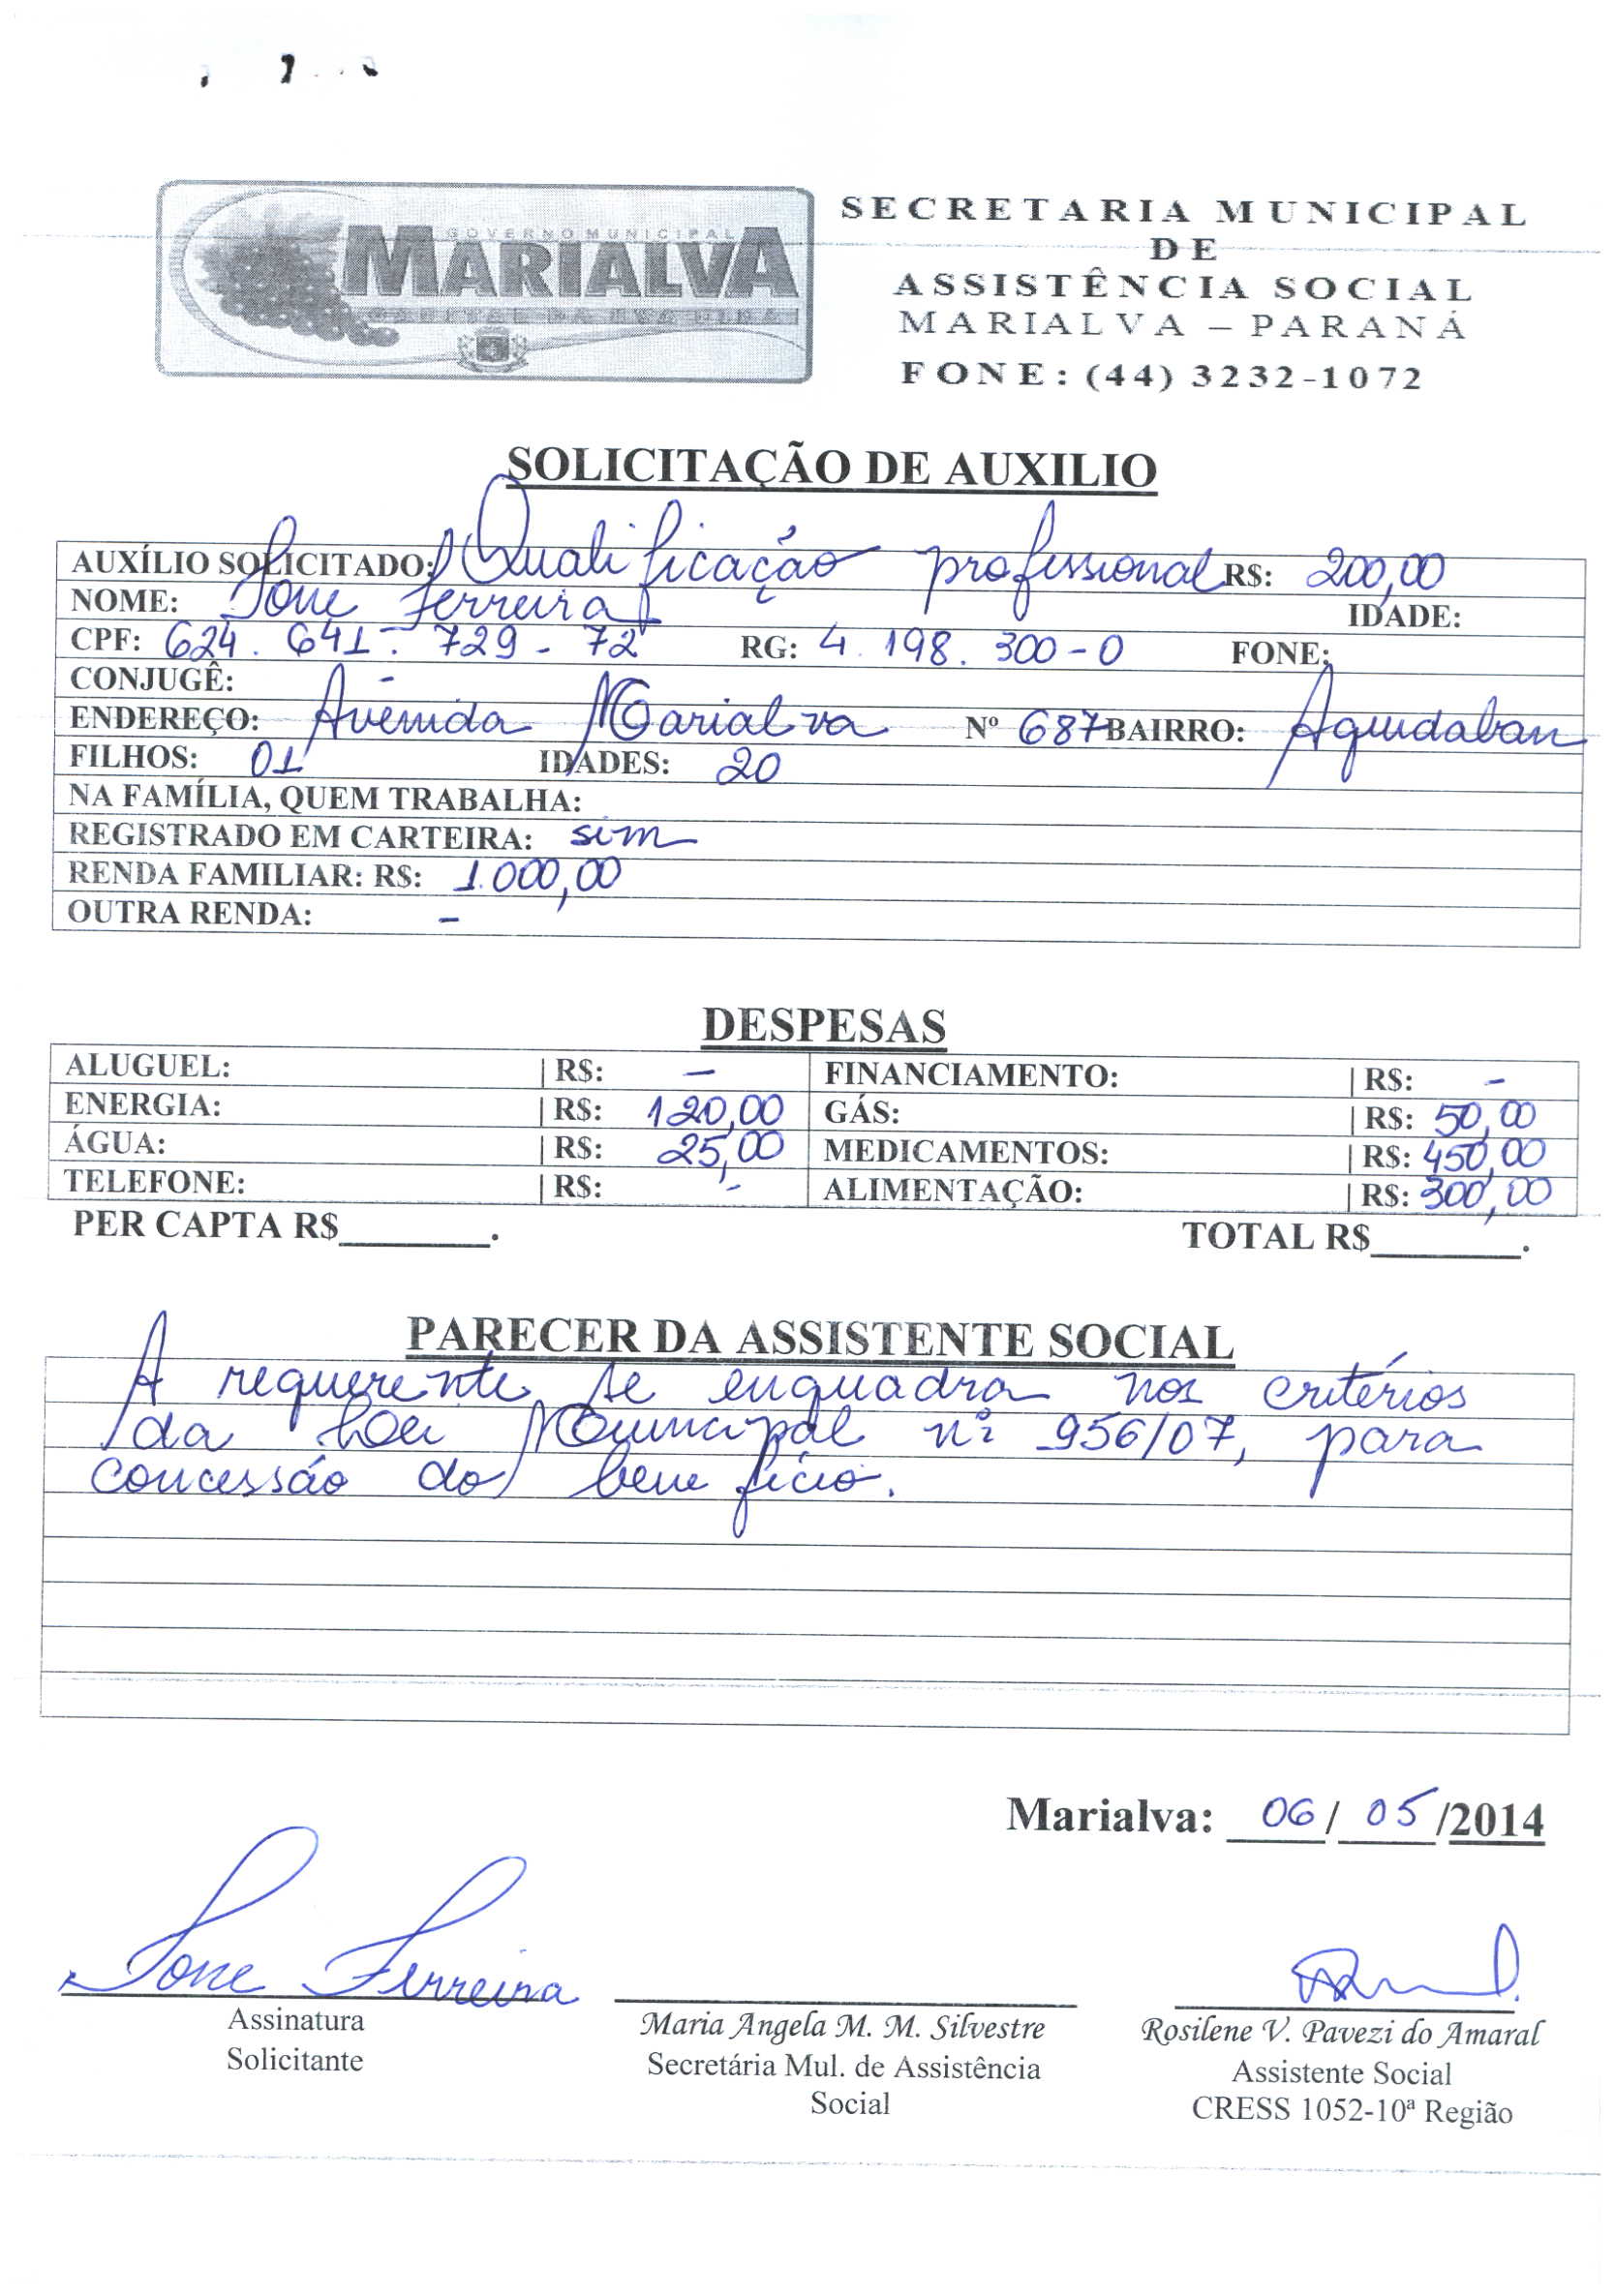 GOVERNO MUNICIPAL
MARIALVA
CAPITAL DA UVA FINA
SECRETARIA MUNICIPAL
DE
ASSISTÊNCIA SOCIAL
MARIALVA – PARANÁ
FONE: (44) 3232-1072
SOLICITAÇÃO DE AUXILIO
AUXÍLIO SOLICITADO: Qualificação profissional R$: 200,00
NOME: Ione Ferreira IDADE:
CPF: 624.641.729-72 RG: 4.198.300-0 FONE:
CONJUGÊ: -
ENDEREÇO: Avenida Marialva Nº 687 BAIRRO: Aquidaban
FILHOS: 01 IDADES: 20
NA FAMÍLIA, QUEM TRABALHA:
REGISTRADO EM CARTEIRA: sim
RENDA FAMILIAR: R$: 1.000,00
OUTRA RENDA: -
DESPESAS
ALUGUEL: | R$: - FINANCIAMENTO: | R$: -
ENERGIA: | R$: 120,00 GÁS: | R$: 50,00
ÁGUA: | R$: 25,00 MEDICAMENTOS: | R$: 450,00
TELEFONE: | R$: - ALIMENTAÇÃO: | R$: 300,00
PER CAPTA R$________. TOTAL R$________.
PARECER DA ASSISTENTE SOCIAL
A requerente se enquadra nos critérios
da Lei Municipal nº 956/07, para
concessão do benefício.
Marialva: 06/05/2014
Ione Ferreira
Assinatura
Solicitante
Maria Angela M. M. Silvestre
Secretária Mul. de Assistência
Social
Rosilene V. Pavezi do Amaral
Assistente Social
CRESS 1052-10ª Região